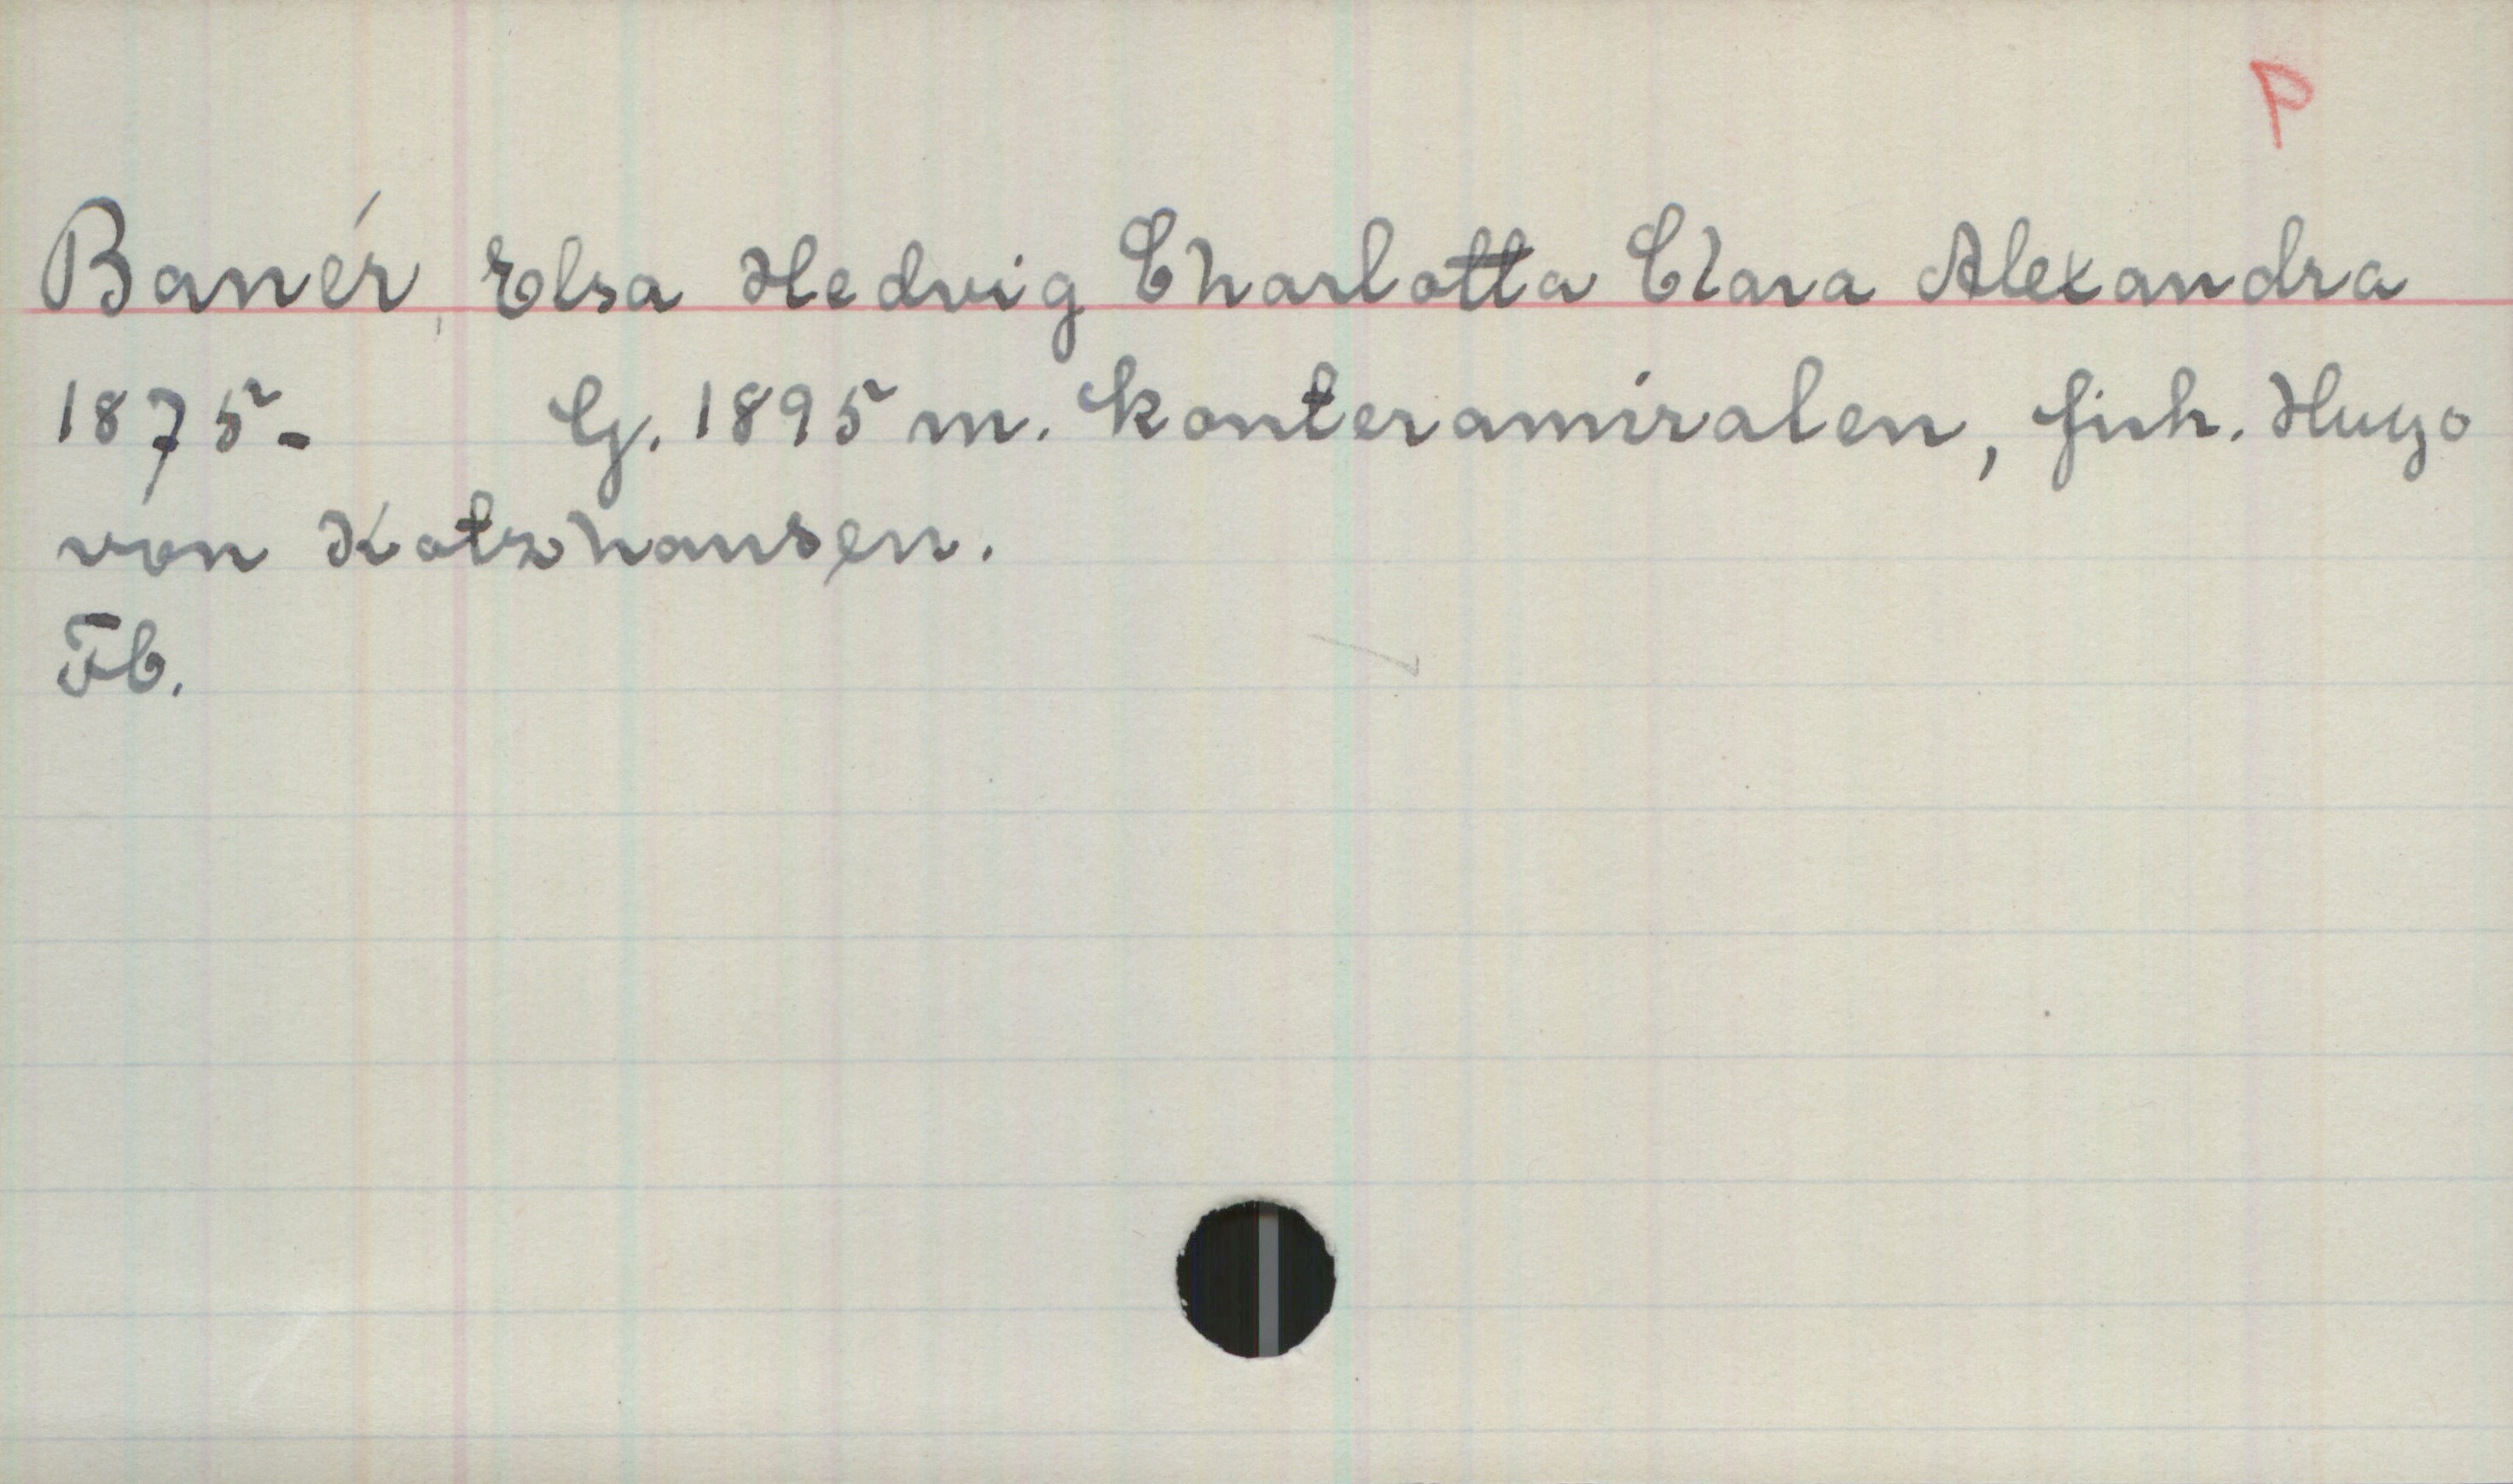 P
Banér, Elsa Hedvig Charlotta Clara Alexandra
1875- G. 1895 m. konteramiralen, frih. Hugo
von Kotzhausen.
Fb.